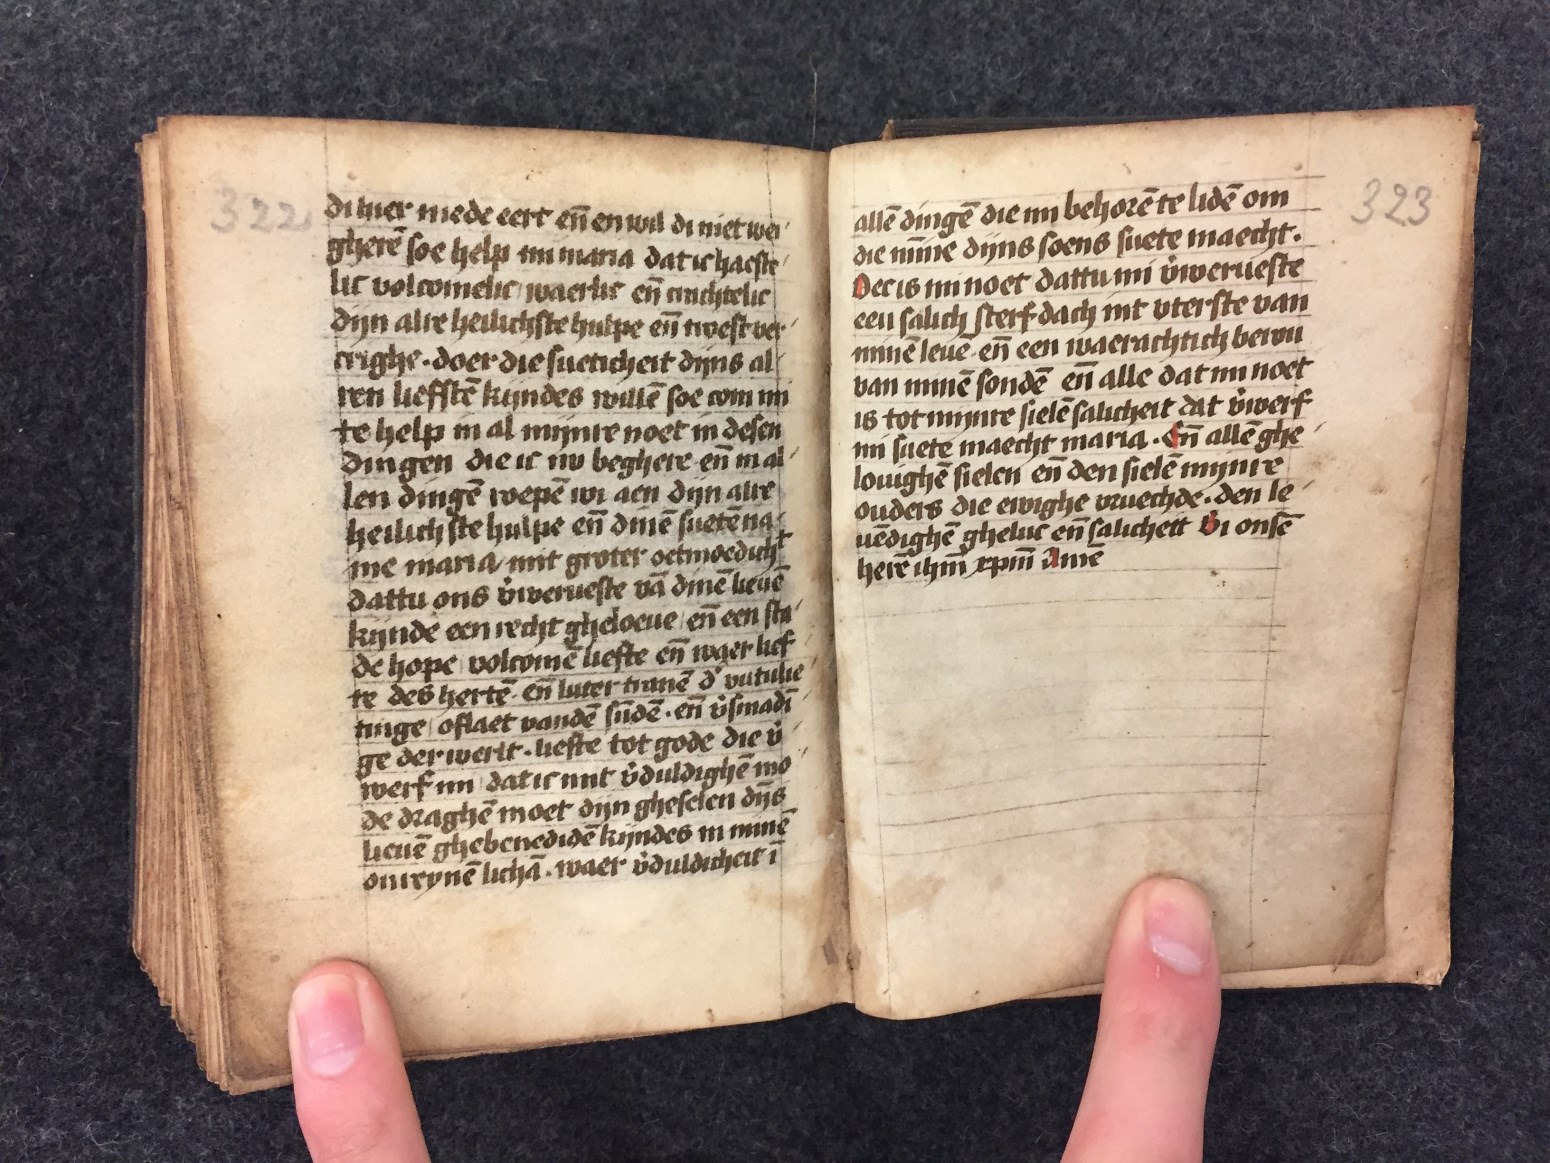 322
di hier mede eert en̄ en wil di niet wei
gherē soe help mi maria dat ic haeste
lic volcomelic waerlic en̄ crachtelic
dijn alre heilichste hulpe en̄ troest ver
crighe. doer die sueticheit dijns al
ren liefstē kijndes willē soe com mi
te help in al mijnre noet in desen
dingen die ic nv beghere en̄ in al
len dingē roepē wi aen dijn alre
heilichste hulpe en̄ dinē suetē na
me maria mit groter oetmoedicht
dattu ons v̉werueste vā dinē lieuē
kijnde een recht gheloeue en̄ een sta
de hope volcomē liefte en̄ waer lief
te des hertē. en̄ luter tranē d̉
tinge oflaet vandē sūdē. en̄ v̉smadī
ge der werlt. liefte tot gode die v̉
werf mi dat ic mit v̉duldighē mo
de draghē moet dijn gheselen dijs
lieuē ghebenedidē kijndes in minē
onreynē lichā. waer v̉duldicheit ī
323
allē dingē die mi behorē te lidē om
die mīne dijns soens suete maecht.
Het is mi noet dattu mi v̉werueste
een salich sterfdach int vterste van
minē leuē en̄ een waerachtich berou
van minē sondē en̄ alle dat mi noet
is tot mijnre sielē salicheit dat v̉werf
mi suete maecht maria. En̄ allē ghe
louighē sielen en̄ den sielē mijnre
ouders die ewighe vruechde. den le
uēdighē gheluc en̄ salicheit Bi onsē
herē ihm̄ xpm̄ Amē